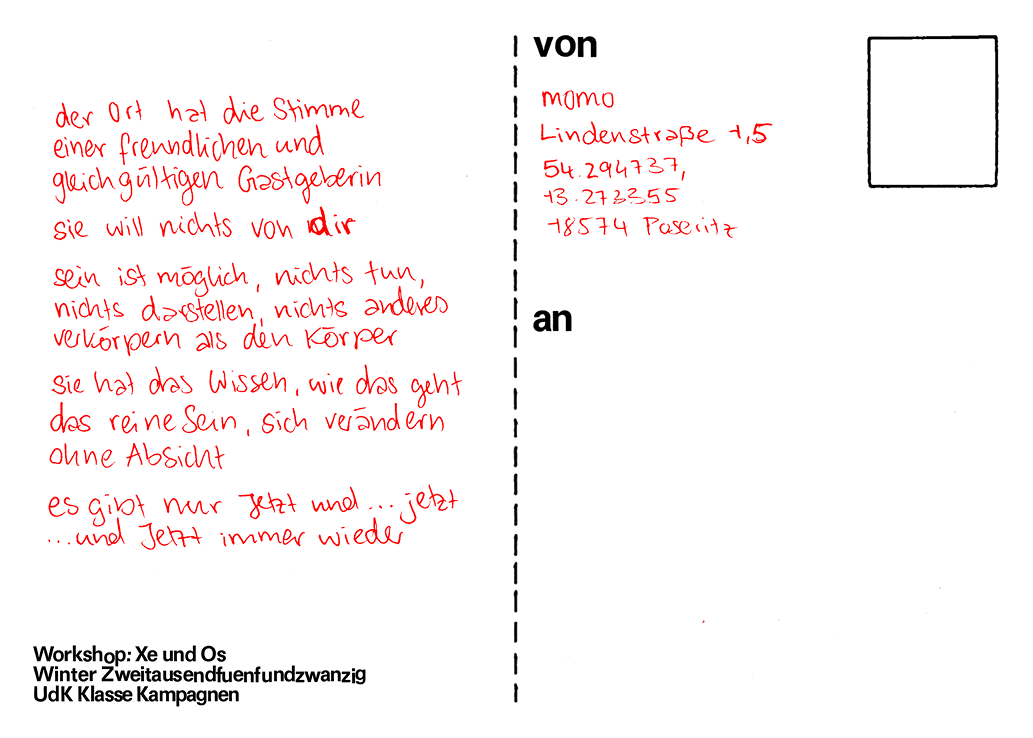 der Ort hat die Stimme
einer freundlichen und
gleichgültigen Gastgeberin
sie will nichts von dir
sein ist möglich, nichts tun,
nichts darstellen, nichts anderes
verkörpern als den Körper
sie hat das Wissen, wie das geht
das reine Sein, sich verändern
ohne Absicht
es gibt nur Jetzt und... jetzt
...und Jetzt immer wieder
Workshop: Xe und Os
Winter Zweitausendfuenfundzwanzig
UdK Klasse Kampagnen
von
momo
Lindenstraße 1,5
54.294737,
13.273355
18574 Poseritz
an